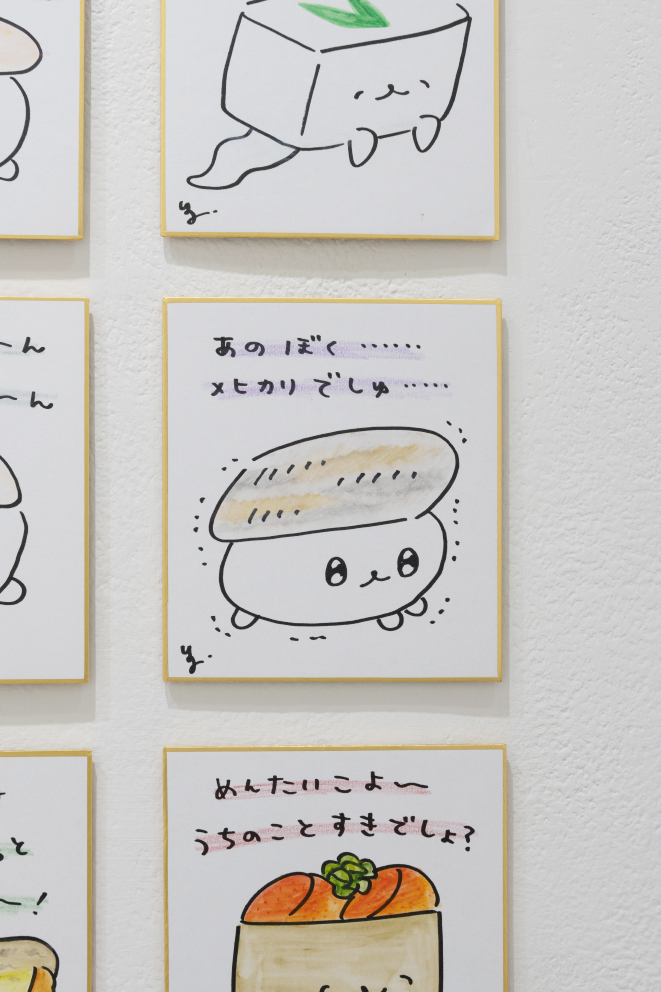 ーん
〜ん
あの ぼく ……
メヒカリ でしゅ ……
めんたいこよ〜
うちのこと すきでしょ?
と
〜!